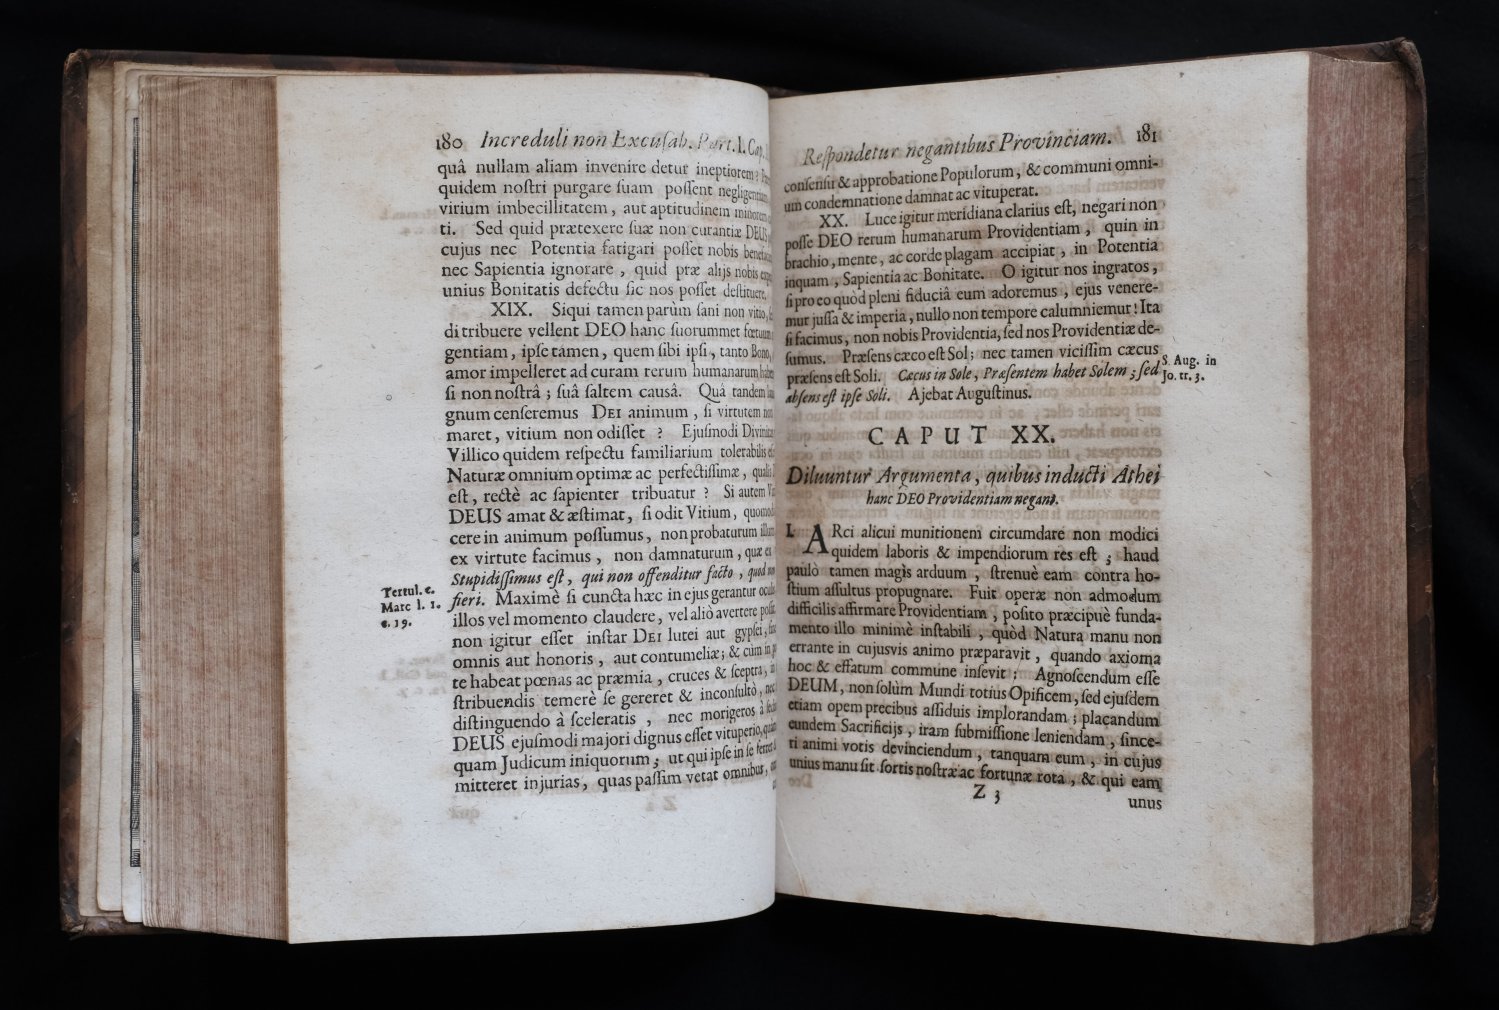 180 Increduli non Excuſab. Part. I. Cap.
quâ nullam aliam invenire detur ineptiorem?
quidem noſtri purgare ſuam poſſent negligentiam,
virium imbecillitatem, aut aptitudinem minorem
ti. Sed quid prætexere ſuæ non curantiæ DEUS
cujus nec Potentia fatigari poſſet nobis
nec Sapientia ignorare, quid præ alijs nobis
unius Bonitatis defectu ſic nos poſſet deſtituere.
XIX. Siqui tamen parùm ſani non vitio,
di tribuere vellent DEO hanc ſuorummet fœtuum
gentiam, ipſe tamen, quem ſibi ipſi, tanto Bono,
amor impelleret ad curam rerum humanarum
ſi non noſtrâ; ſuâ ſaltem causâ. Quâ tandem
gnum cenſeremus DEI animum, ſi virtutem non
maret, vitium non odiſſet? Ejuſmodi
Villico quidem reſpectu familiarium tolerabilis
Naturæ omnium optimæ ac perfectiſſimæ, qualis
eſt, rectè ac ſapienter tribuatur? Si autem
DEUS amat & æſtimat, ſi odit Vitium, quomodo
cere in animum poſſumus, non probaturum illum
ex virtute facimus, non damnaturum, quæ ex
Stupidiſſimus eſt, qui non offenditur facto, quod non
Tertul. c.
Marc l. 1.
c. 19.
fieri. Maximè ſi cuncta hæc in ejus gerantur
illos vel momento claudere, vel aliò avertere
non igitur eſſet inſtar DEI lutei aut gypſei,
omnis aut honoris, aut contumeliæ; & cùm in
te habeat pœnas ac præmia, cruces & ſceptra, in
ſtribuendis temerè ſe gereret & inconſultò, nec
diſtinguendo à ſceleratis, nec morigeros à
DEUS ejuſmodi majori dignus eſſet vituperio,
quam Judicum iniquorum; ut qui ipſe in ſe
mitteret injurias, quas paſſim vetat omnibus,
Reſpondetur negantibus Provinciam. 181
conſenſu & approbatione Populorum, & communi omni-
um condemnatione damnat ac vituperat.
XX. Luce igitur meridiana clarius eſt, negari non
poſſe DEO rerum humanarum Providentiam, quin in
brachio, mente, ac corde plagam accipiat, in Potentia
inquam, Sapientia ac Bonitate. O igitur nos ingratos,
ſi pro eo quòd pleni fiduciâ eum adoremus, ejus venere-
mur juſſa & imperia, nullo non tempore calumniemur! Ita
ſi facimus, non nobis Providentia, ſed nos Providentiæ de-
ſumus. Præſens cæco eſt Sol; nec tamen viciſſim cæcus
præſens eſt Soli. Cæcus in Sole, Præſentem habet Solem; ſed
S. Aug. in
Jo. tr. 3.
abſens eſt ipſe Soli. Ajebat Auguſtinus.
CAPUT XX.
Diluuntur Argumenta, quibus inducti Athei
hanc DEO Providentiam negant.
I. ARci alicui munitionem circumdare non modici
quidem laboris & impendiorum res eſt; haud
paulò tamen magis arduum, ſtrenuè eam contra ho-
ſtium aſſultus propugnare. Fuit operæ non admodum
difficilis affirmare Providentiam, poſito præcipuè funda-
mento illo minimè inſtabili, quòd Natura manu non
errante in cujusvis animo præparavit, quando axioma
hoc & effatum commune inſevit: Agnoſcendum eſſe
DEUM, non ſolùm Mundi totius Opificem, ſed ejuſdem
etiam opem precibus aſſiduis implorandam; placandum
eundem Sacrificijs, iram ſubmiſſione leniendam, ſince-
ri animi votis devinciendum, tanquam eum, in cujus
unius manu ſit ſortis noſtræ ac fortunæ rota, & qui eam
Z 3
unus